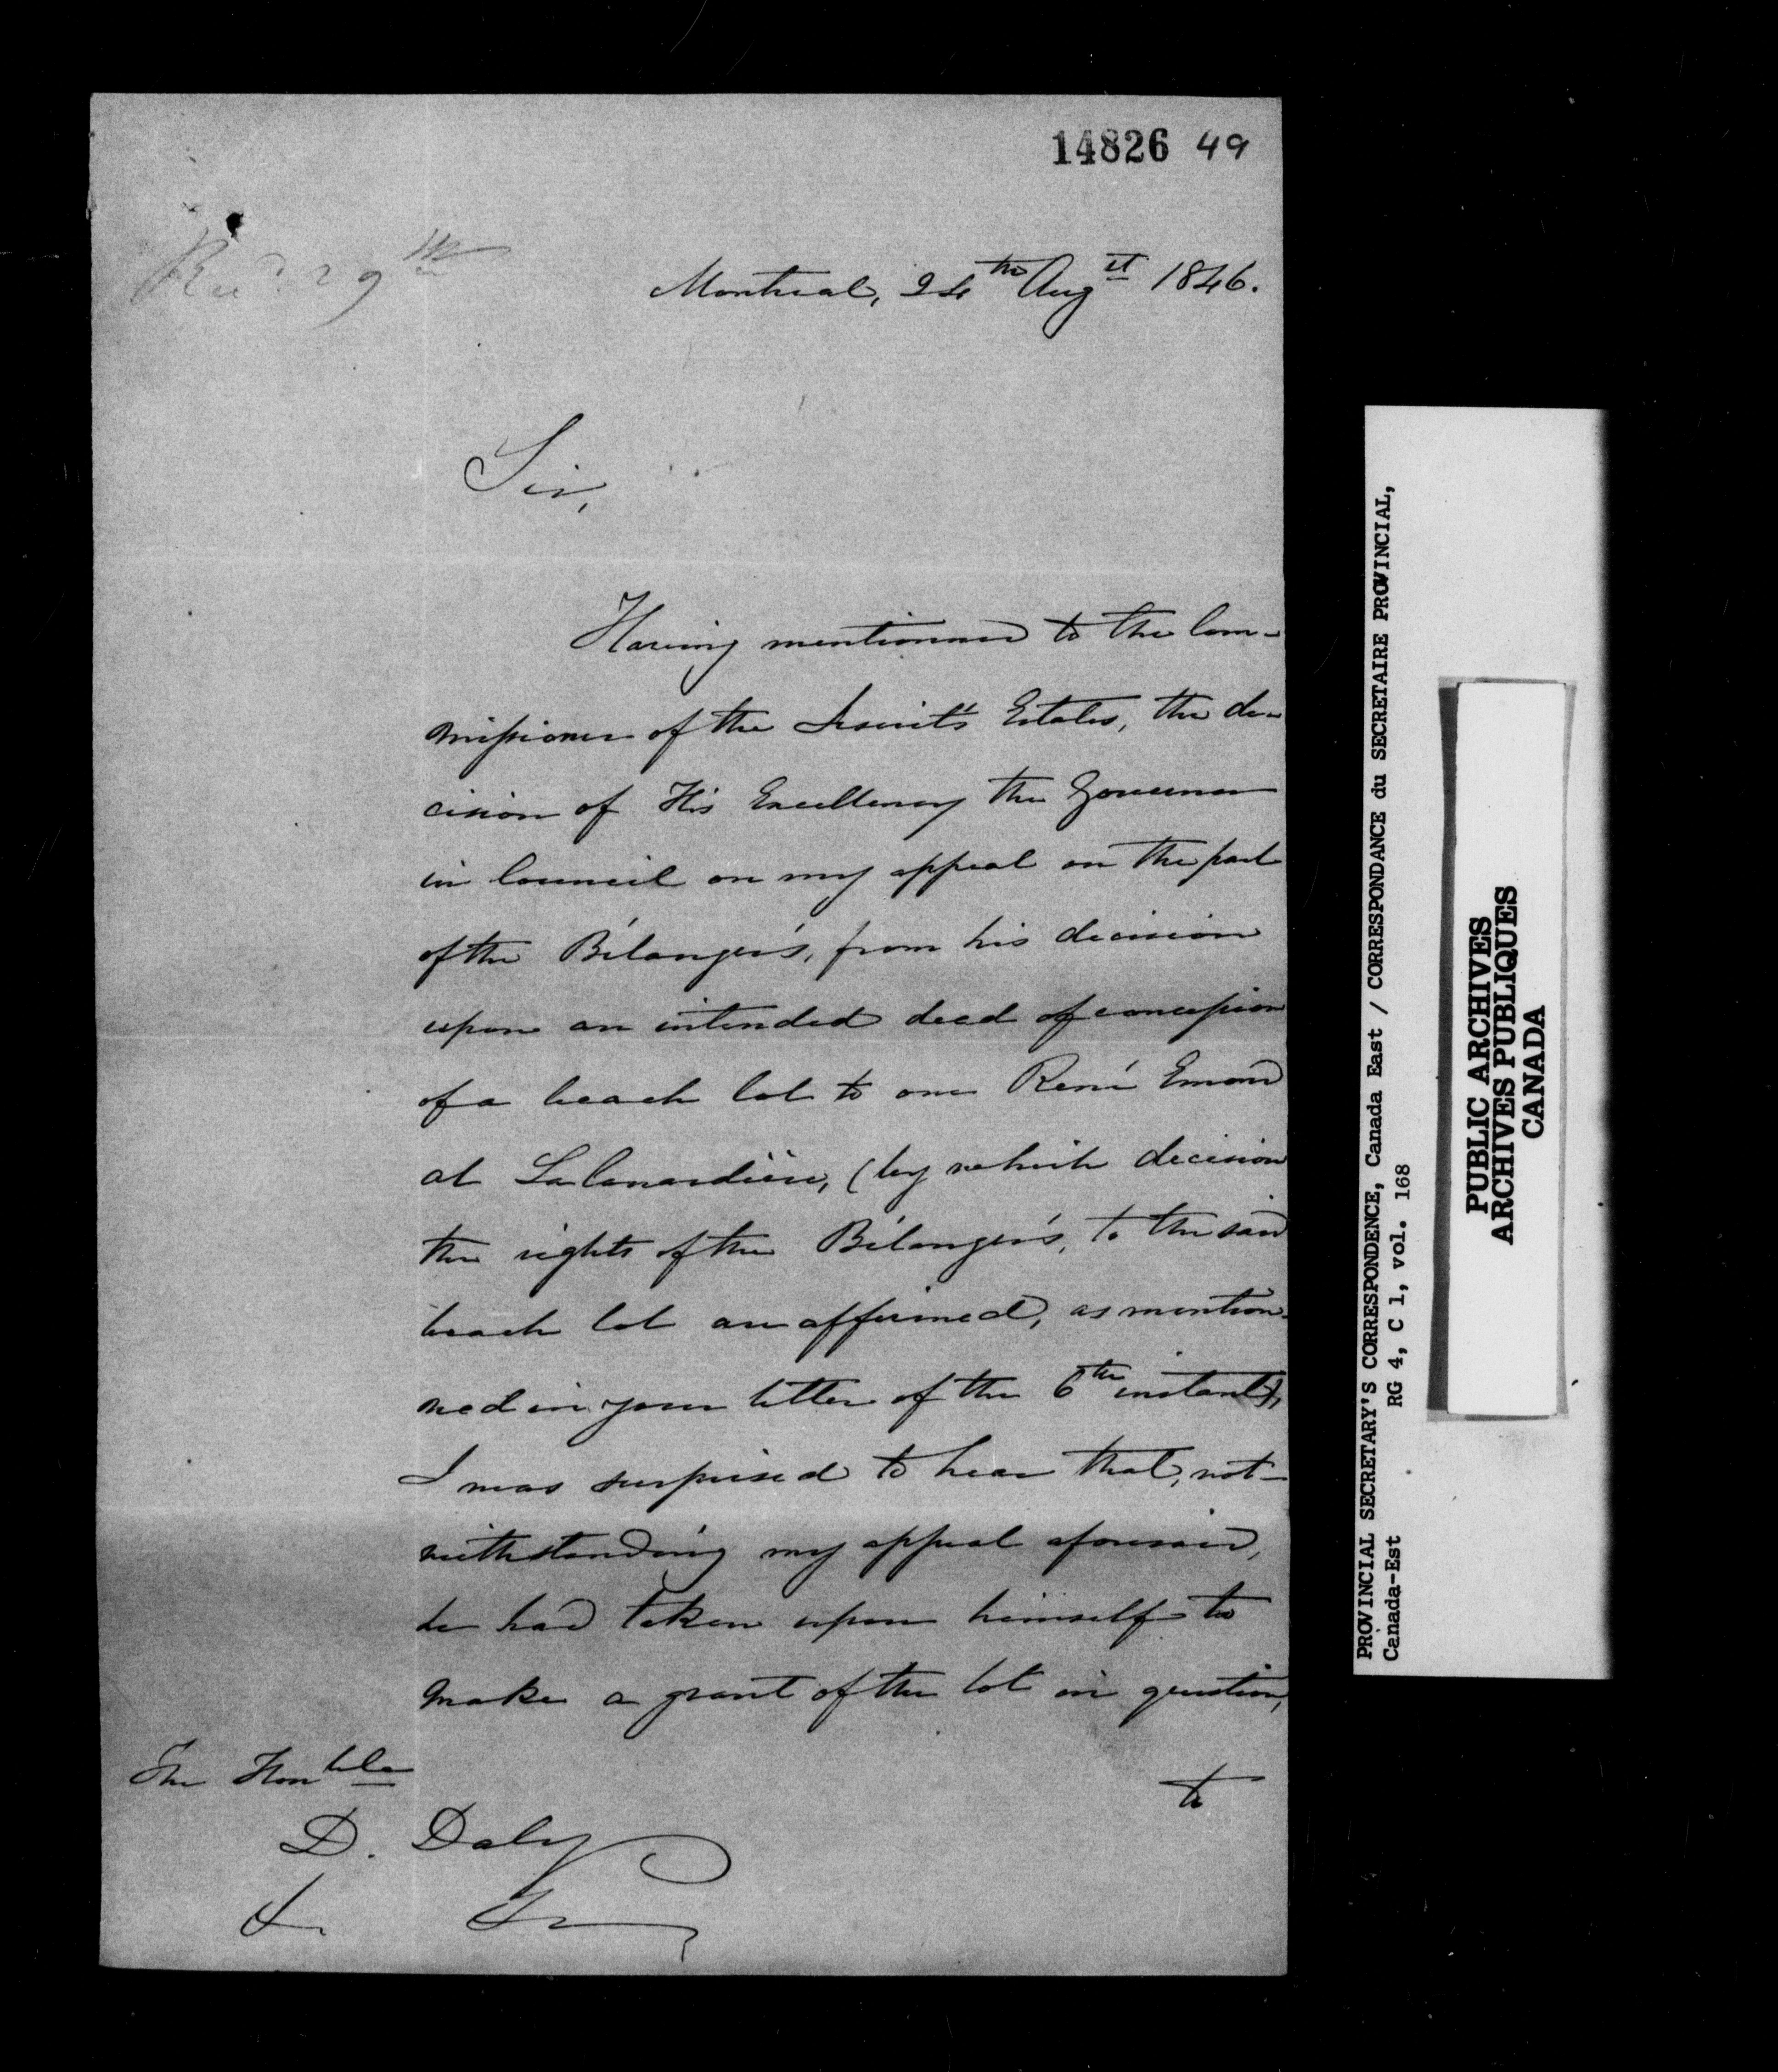 14826 49
Rec'd. 29th
Montreal, 24th Augst 1846.
Sir,
Having mentionned to the Com-
missioner of the Jesuit's Estates, the de-
cision of His Excellency the Governor
in Council on my appeal on the part
of the Bélanger's, from his decision
upon an intended deed of concession
of a beach lot to one René Emond
at LaCanardière, (by which decision
the rights of the Bélanger's, to the said
beach lot are affirmed, as mention-
ned in your letter of the 6th instant),
I was surprised to hear that, not-
withstanding my appeal aforesaid,
he had taken upon himself to
make a grant of the lot in question,
to
The Honble
D. Daly
PROVINCIAL SECRETARY'S CORRESPONDENCE, Canada East / CORRESPONDANCE du SECRETAIRE PROVINCIAL,
Canada-Est RG 4, C 1, vol. 168
PUBLIC ARCHIVES
ARCHIVES PUBLIQUES
CANADA